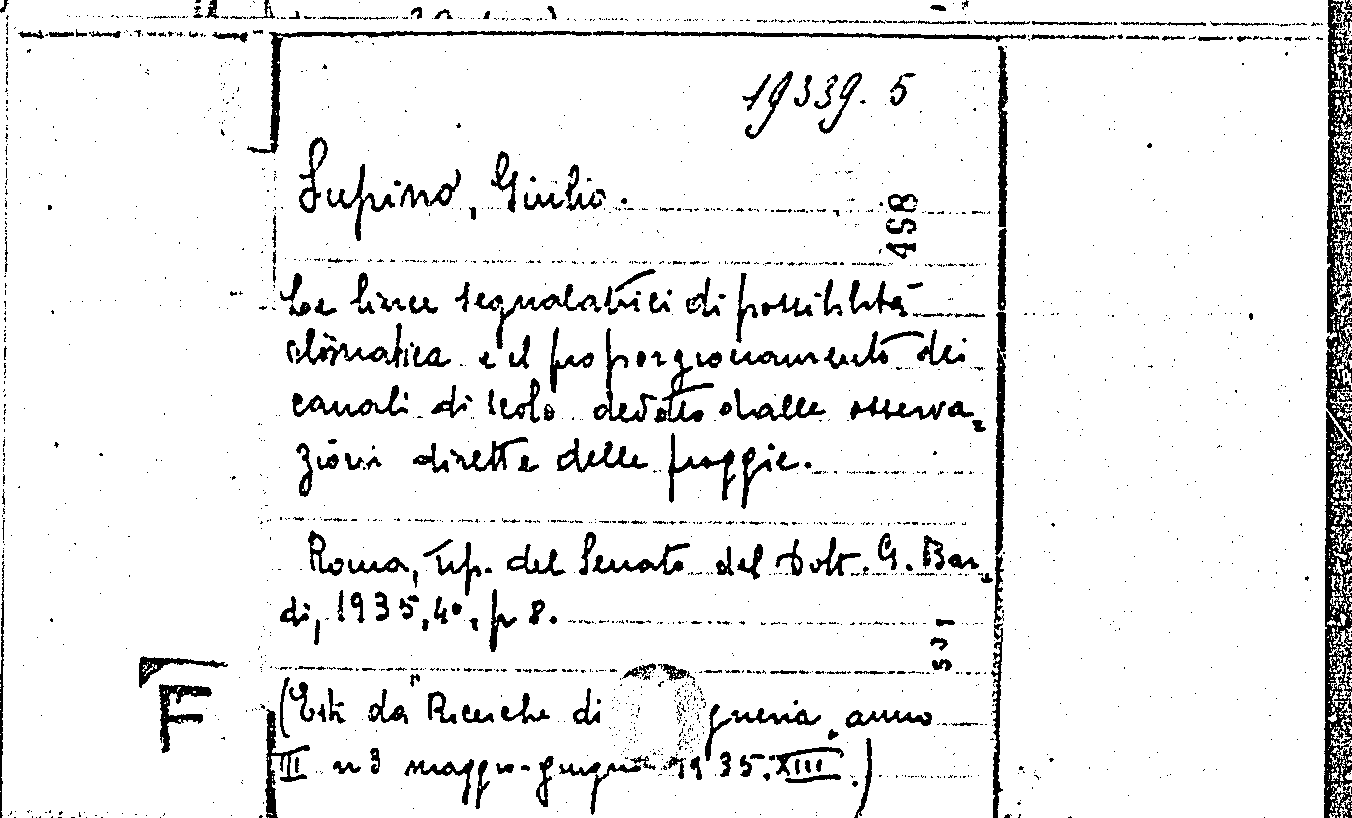 19339. 5
Supino, Giulio.
458
Le linee segnalatrici di possibilità
climatica e il proporzionamento dei
canali di scolo dedotto dalle osserva=
zioni dirette delle piogge.
Roma, Tip. del Senato del Dott. G. Bar=
di, 1935, 4°, p 8.
531
(Estr da "Ricerche di gneria, anno
III n 3 maggio-giugno 1935.XIII.)
F